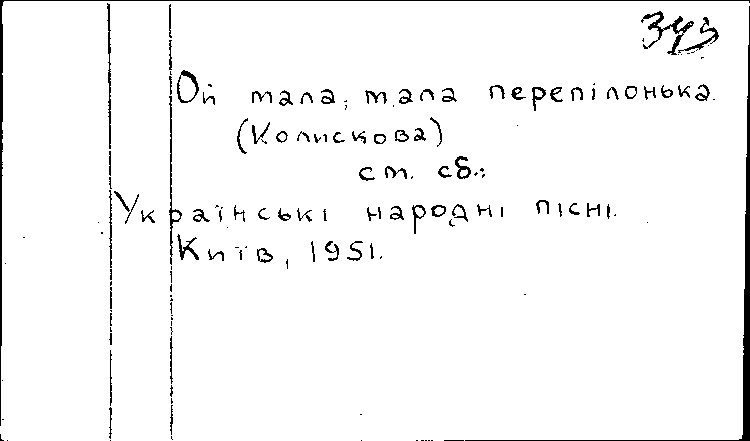 343
Ой мала, мала перепілонька.
(Колискова)
ст. сб.:
Українські народні пісні.
Київ, 1951.